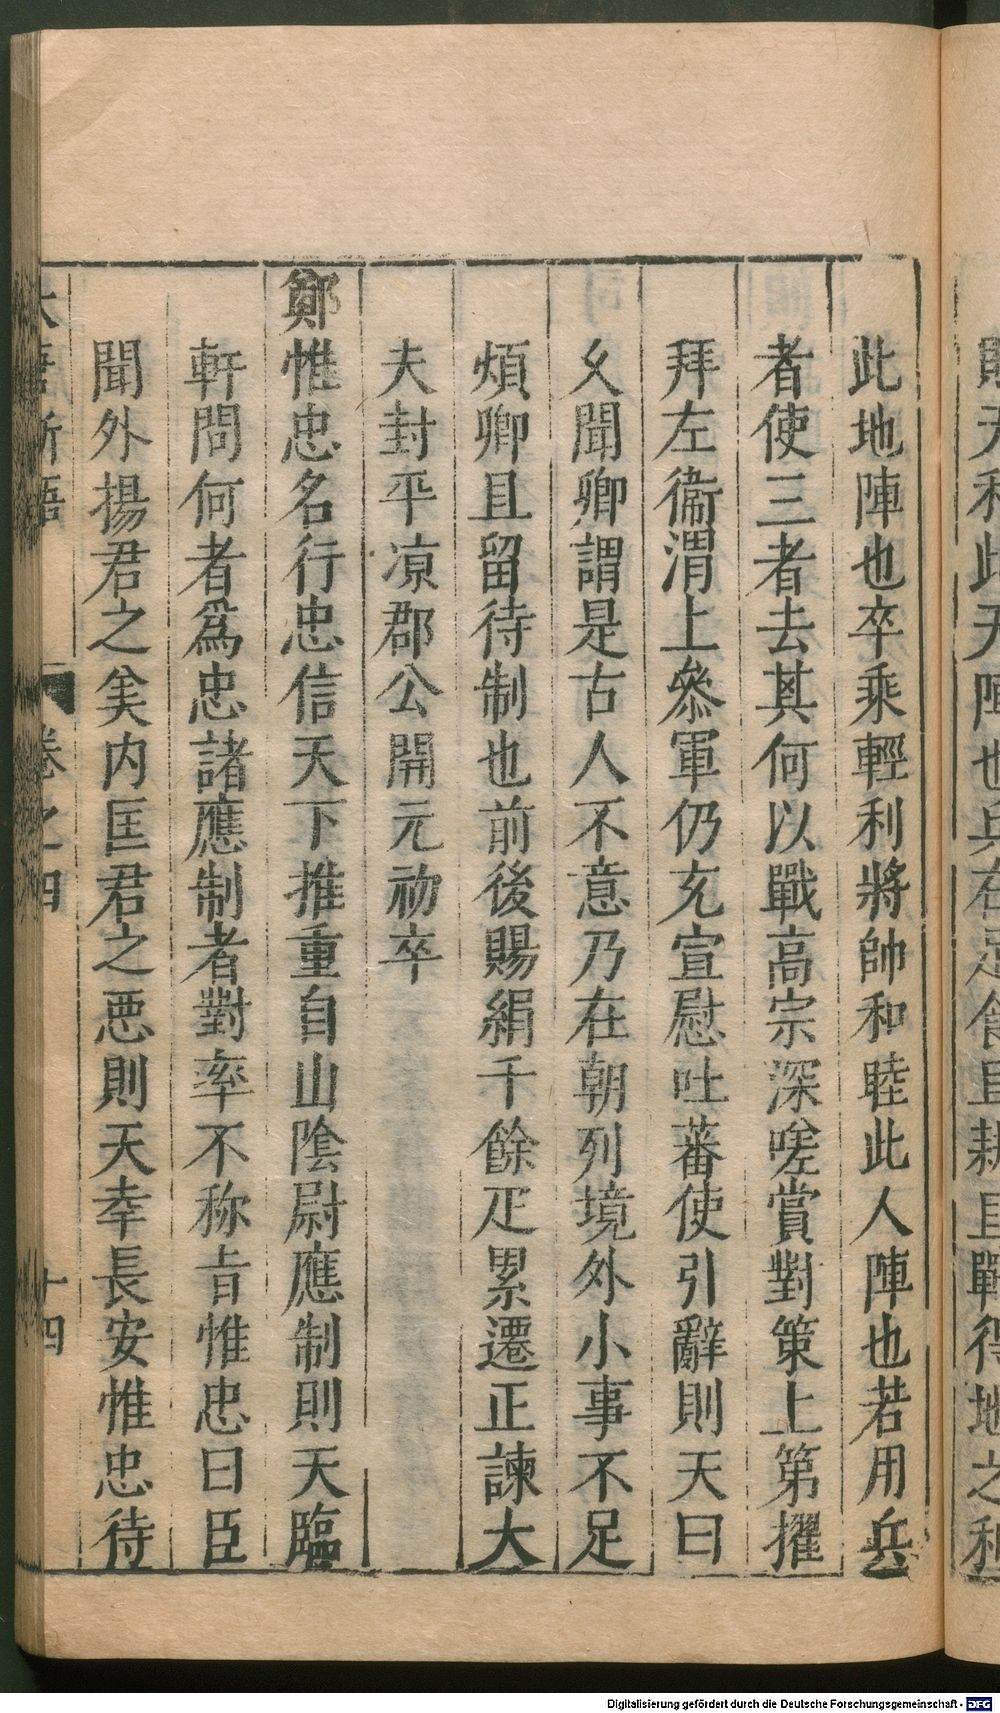 此地陣也卒乘輕利將帥和睦此人陣也若用兵
者使三者去其何以戰高宗深嗟賞對策上第擢
拜左衞渭上參軍仍充宣慰吐蕃使引辭則天曰
乆聞卿謂是古人不意乃在朝列境外小事不足
煩卿且留待制也前後賜絹千餘疋累遷正諫大
夫封平凉郡公開元初卒
鄭惟忠名行忠信天下推重自山陰尉應制則天臨
軒問何者爲忠諸應制者對率不称旨惟忠曰臣
聞外揚君之美内匡君之惡則天幸長安惟忠待
大唐新語 卷之四 十四
Digitalisierung gefördert durch die Deutsche Forschungsgemeinschaft - DFG